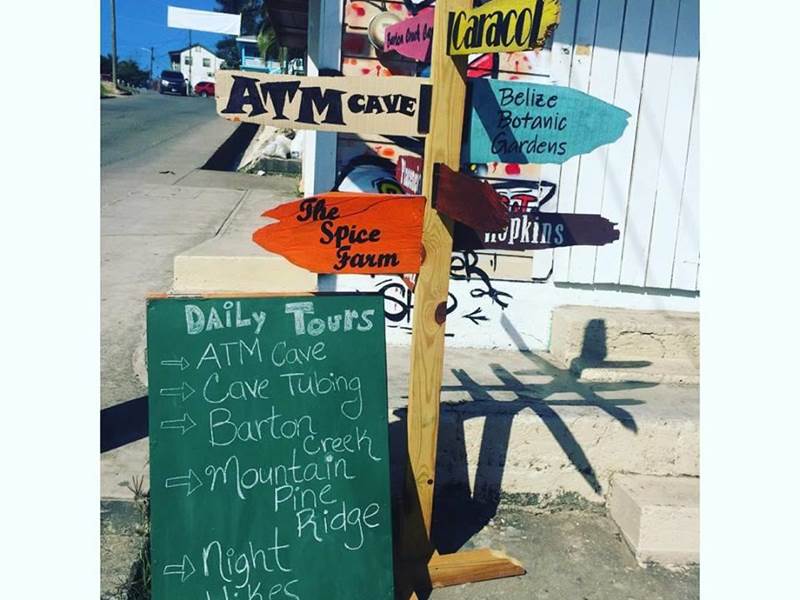 Caracol
Barton Creek
ATM CAVE
Belize
Botanic
Gardens
Hopkins
The
Spice
Farm
DAILY TOURS
⇨ ATM Cave
⇨ Cave Tubing
⇨ Barton
Creek
⇨ Mountain
Pine
Ridge
⇨ Night
Hikes